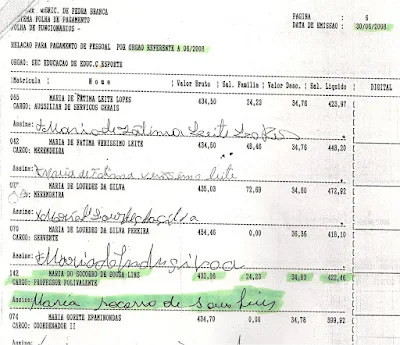 DE PEDRA BRANCA
FOLHA DE PAGAMENTO
FOLHA DE FUNCIONARIOS -
PAGINA : 6
DATA DE EMISSAO : 30/06/2008
RELACAO PARA PAGAMENTO DE PESSOAL POR ORGAO REFERENTE A 06/2008
ORGAO: SEC EDUCACAO DE EDUC.C.ESPORTE
Matricula | N o m e | Valor Bruto | Sal. Familia | Valor Desc. | Sal. Liquido | DIGITAL
065 MARIA DE FATIMA LEITE LOPES 434,50 24,23 34,76 423,97
CARGO: AUXILIAR DE SERVICOS GERAIS
Assine: Maria de Fatima Leite Lopes
042 MARIA DE FATIMA VERISSIMO LEITE 434,50 48,46 34,76 448,20
CARGO: MERENDEIRA
Assine: Maria de Fatima Leite
MARIA DE LOURDES DA SILVA 435,03 72,69 34,80 472,92
CARGO: MERENDEIRA
Assine:
MARIA DE LOURDES DA SILVA PEREIRA 454,46 0,00 36,36 418,10
CARGO: SERVENTE
Assine:
142 MARIA DO SOCORRO DE SOUSA LINS 24,23 34,60 422,46
CARGO: PROFESSOR POLIVALENTE
Assine: Maria socorro de Sousa Lins
074 MARIA GORETE EPAMINONDAS 434,70 0,00 34,78 399,92
CARGO: COORDENADOR II